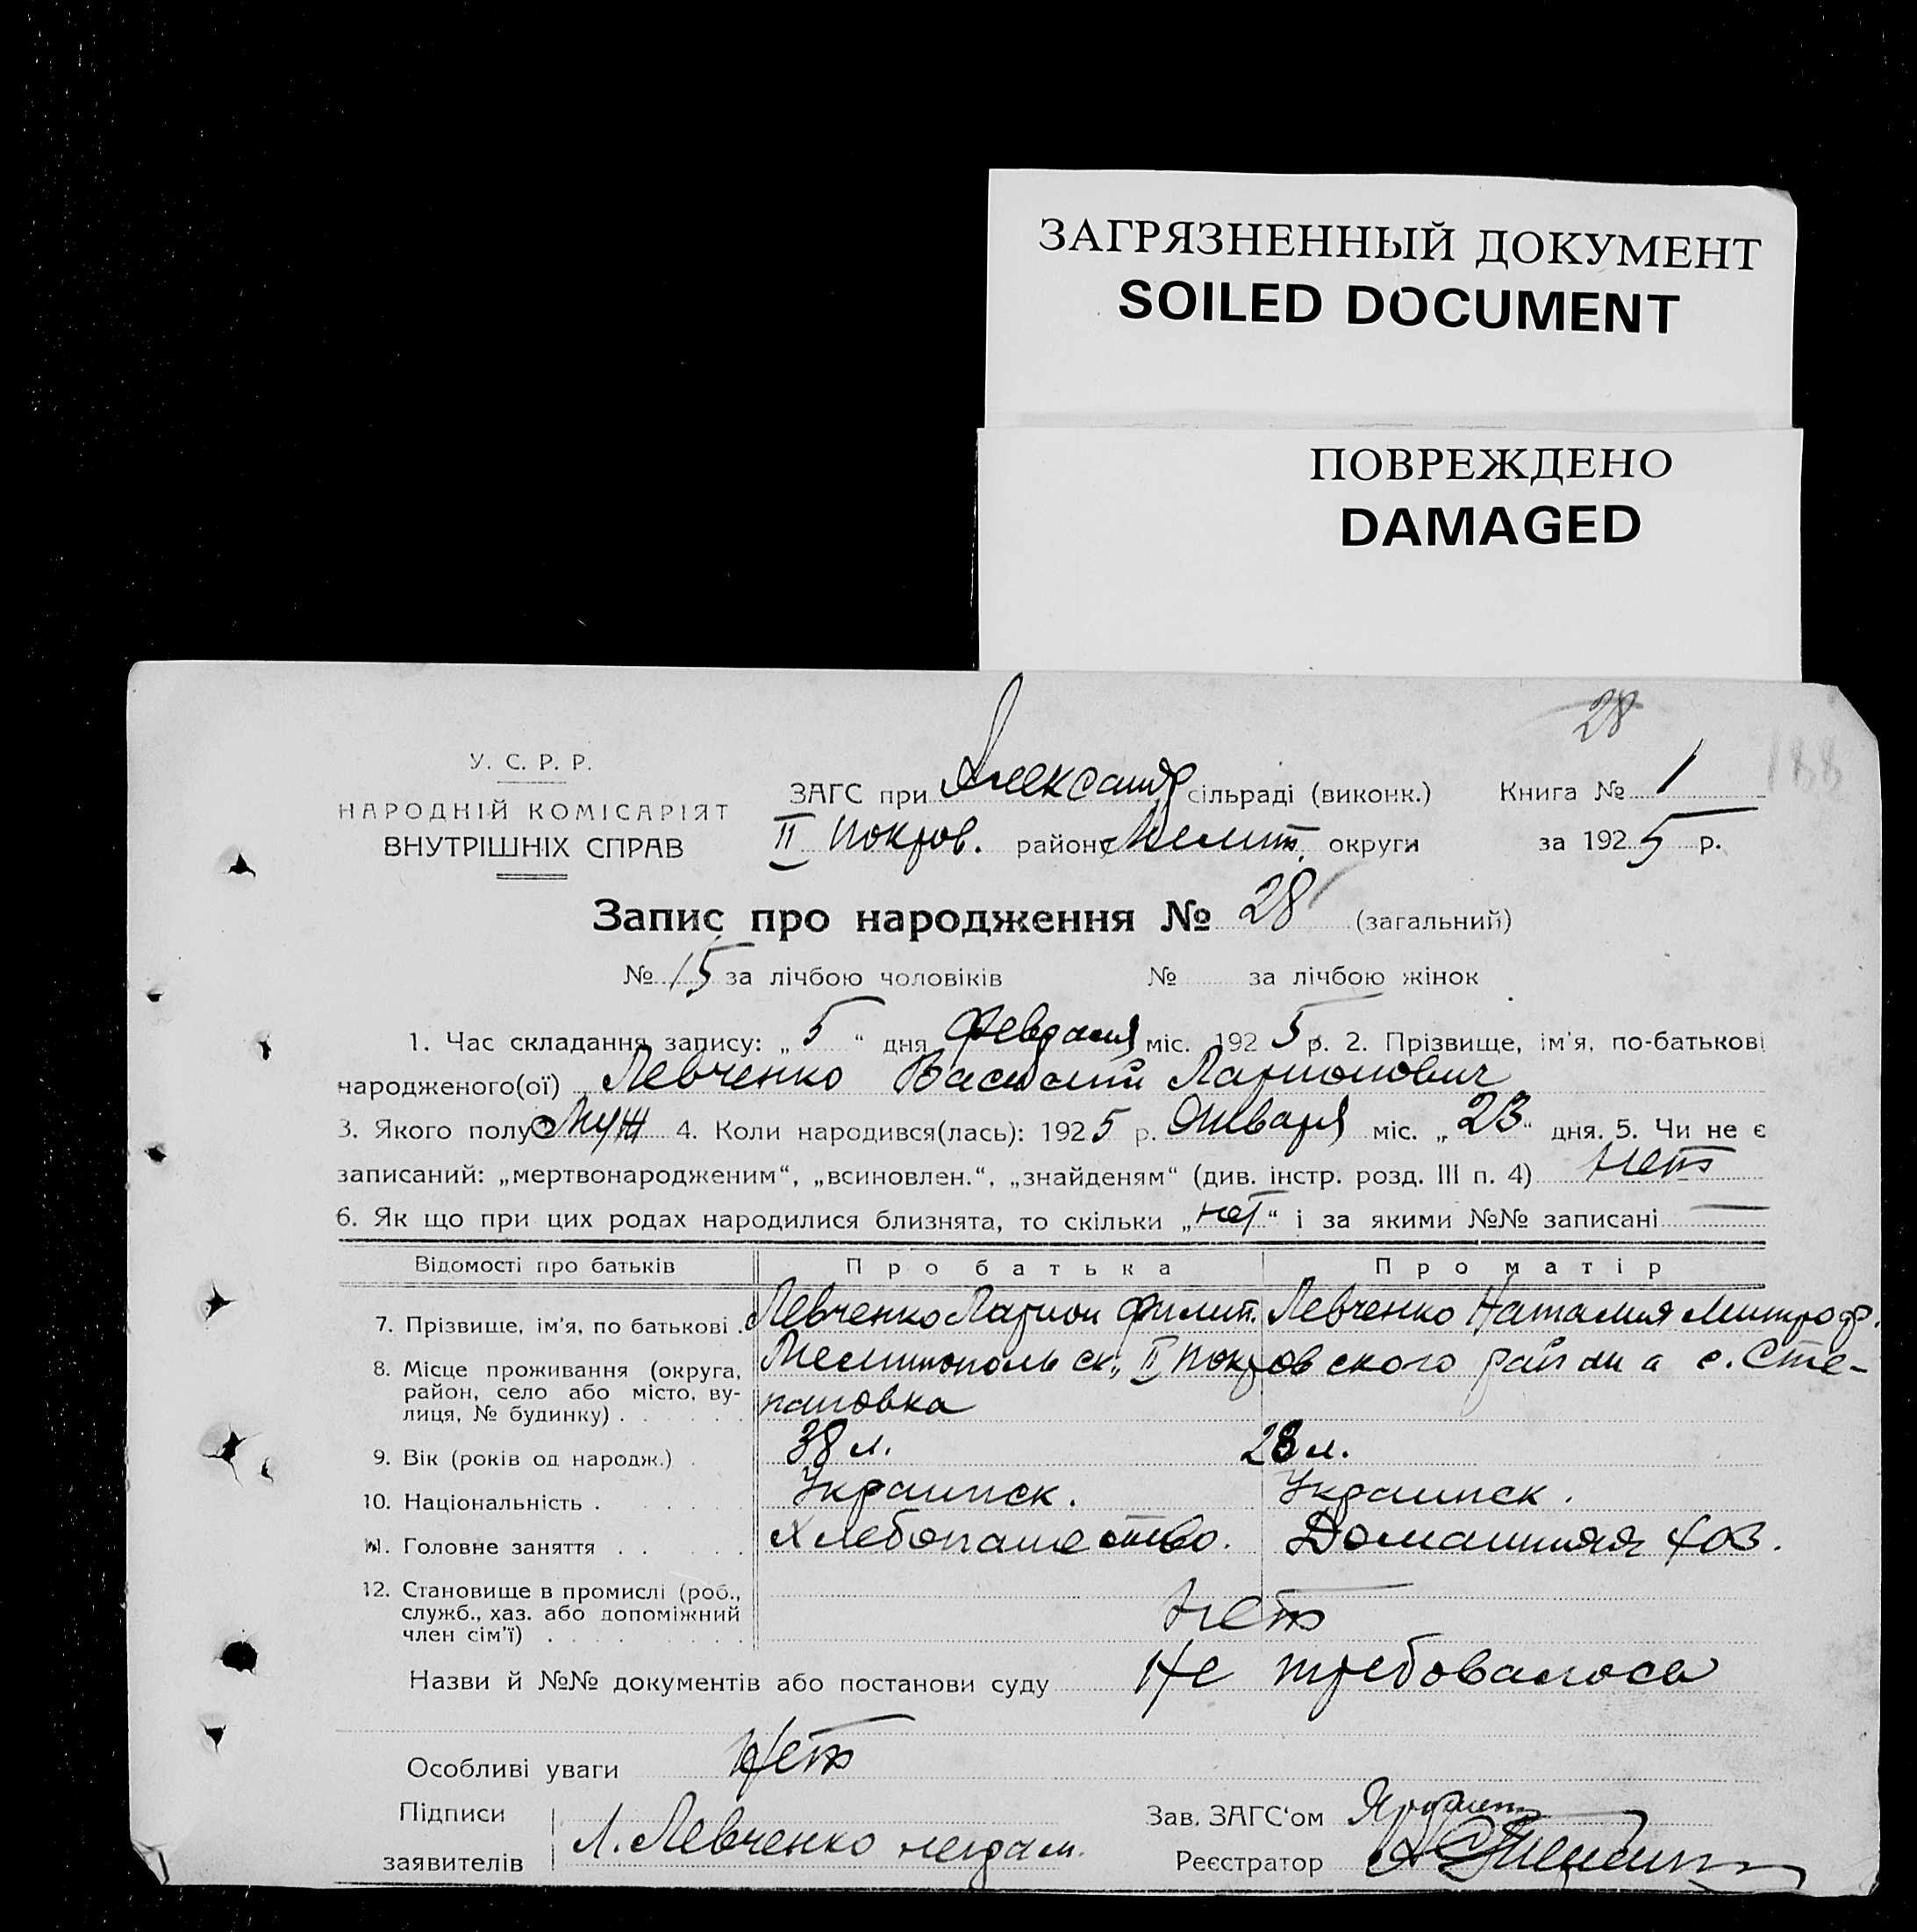 ЗАГРЯЗНЕННЫЙ ДОКУМЕНТ
SOILED DOCUMENT
ПОВРЕЖДЕНО
DAMAGED
28
188
У. С. Р. Р.
НАРОДНІЙ КОМІСАРІЯТ
ВНУТРІШНІХ СПРАВ
ЗАГС при Александр сільраді (виконк.) Книга № 1
II Покров. району Мелит. округи за 1925 р.
Запис про народження № 28 (загальний)
№ 15 за лічбою чоловіків № за лічбою жінок
1. Час складання запису: „5“ дня февраля міс. 1925 р. 2. Прізвище, ім'я, по-батькові
народженого(ої) Левченко Василий Ларионович
3. Якого полу Муж 4. Коли народився(лась): 1925 р. Января міс. „23“ дня. 5. Чи не є
записаний: „мертвонародженим“, „всиновлен.“, „знайденям“ (див. інстр. розд. III п. 4) Нет
6. Як що при цих родах народилися близнята, то скільки „нет“ і за якими №№ записані —
Відомості про батьків Про батька Про матір
7. Прізвище, ім'я, по батькові . Левченко Ларион Филип. Левченко Наталия Митроф.
8. Місце проживання (округа, Мелитопольск., II Покровского района с. Сте-
район, село або місто, ву-
лиця, № будинку) . пановка
9. Вік (років од народж.) . 38 л. 28 л.
10. Національність . Украинск. Украинск.
11. Головне заняття . . Хлебопашество. Домашняя хоз.
12. Становище в промислі (роб.,
служб., хаз. або допоміжний
член сім'ї) . Нет
Назви й №№ документів або постанови суду Не требовалось
Особливі уваги Нет
Підписи
заявителів Л. Левченко неграм.
Зав. ЗАГС'ом
Реєстратор